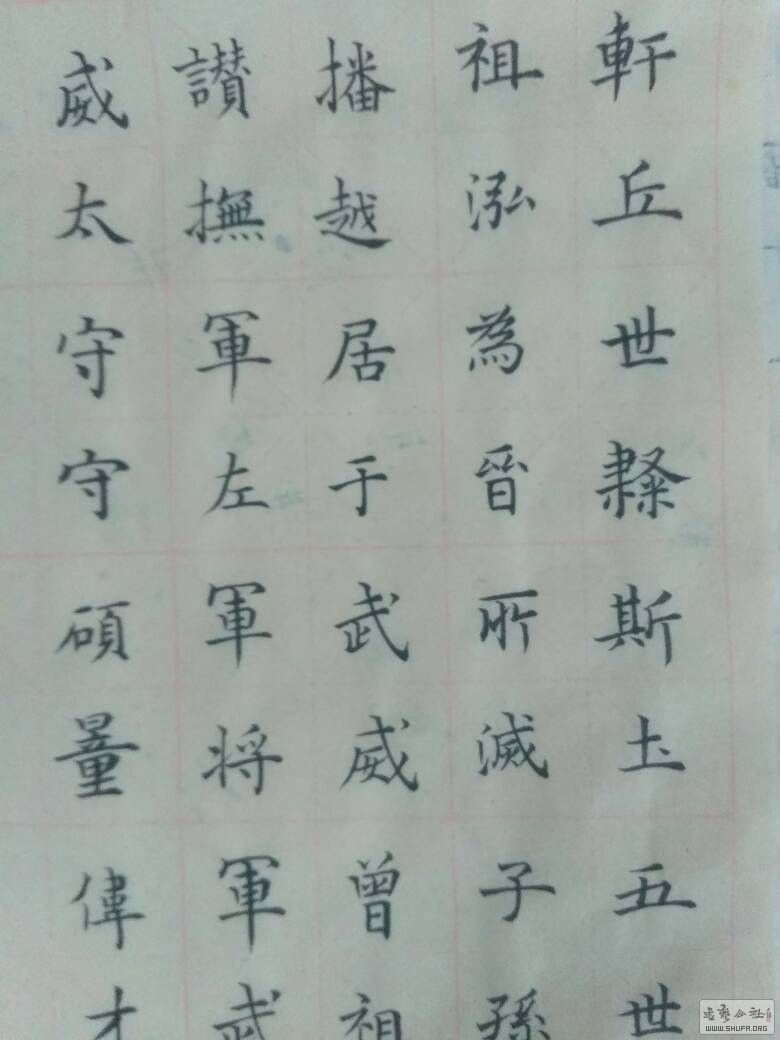 軒丘世隸斯圡五世
祖泓為晉所滅子孫
播越居于武威曾祖
讃撫軍左軍将軍武
威太守守碩量偉才
书艺公社
WWW.SHUFA.ORG